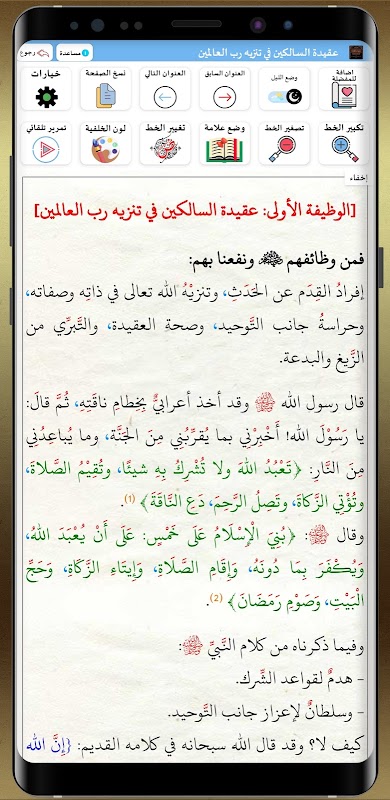 عقيدة السالكين في تنزيه رب العالمين
مساعدة
رجوع
اضافة للمفضلة
وضع الليل
العنوان السابق
العنوان التالي
نسخ الصفحة
خيارات
تكبير الخط
تصغير الخط
وضع علامة
تغيير الخط
لون الخلفية
تمرير تلقائي
إخفاء
[الوظيفة الأولى: عقيدة السالكين في تنزيه رب العالمين]
فمن وظائفهم ﷺ ونفعنا بهم:
إفرادُ القِدَم عن الحَدَثِ، وتنزيْهُ الله تعالى في ذاتِه وصفاته،
وحراسةُ جانب التَّوحيد، وصحة العقيدة، والتَّبرِّي من
الزَّيغ والبدعة.
قال رسول الله ﷺ وقد أخذ أعرابيٌّ بِخِطامِ ناقَتِهِ، ثُمَّ قالَ:
يا رَسُوْلَ الله! أَخْبِرْنِي بما يُقرِّبُنِي مِنَ الجَنَّة، وما يُباعِدُنِي
مِنَ النَّارِ: ﴿تَعْبُدُ اللهَ ولا تُشْرِكُ بِهِ شيئًا، وتُقِيْمُ الصَّلاةَ،
وتُؤْتِي الزَّكاةَ، وتَصلُ الرَّحِمَ، دَعِ النَّاقَةَ﴾ (1).
وقال ﷺ: ﴿بُنِيَ الْإِسْلَامُ عَلَى خَمْسٍ: عَلَى أَنْ يُعْبَدَ اللهُ،
وَيُكْفَرَ بِمَا دُونَهُ، وَإِقَامِ الصَّلَاةِ، وَإِيتَاءِ الزَّكَاةِ، وَحَجِّ
الْبَيْتِ، وَصَوْمِ رَمَضَانَ﴾ (2).
وفيما ذكرناه من كلام النَّبيِّ ﷺ:
- هدمٌ لقواعد الشِّرك.
- وسلطانٌ لإعزاز جانب التَّوحيد.
كيف لا؟ وقد قال الله سبحانه في كلامه القديم: {إِنَّ الله